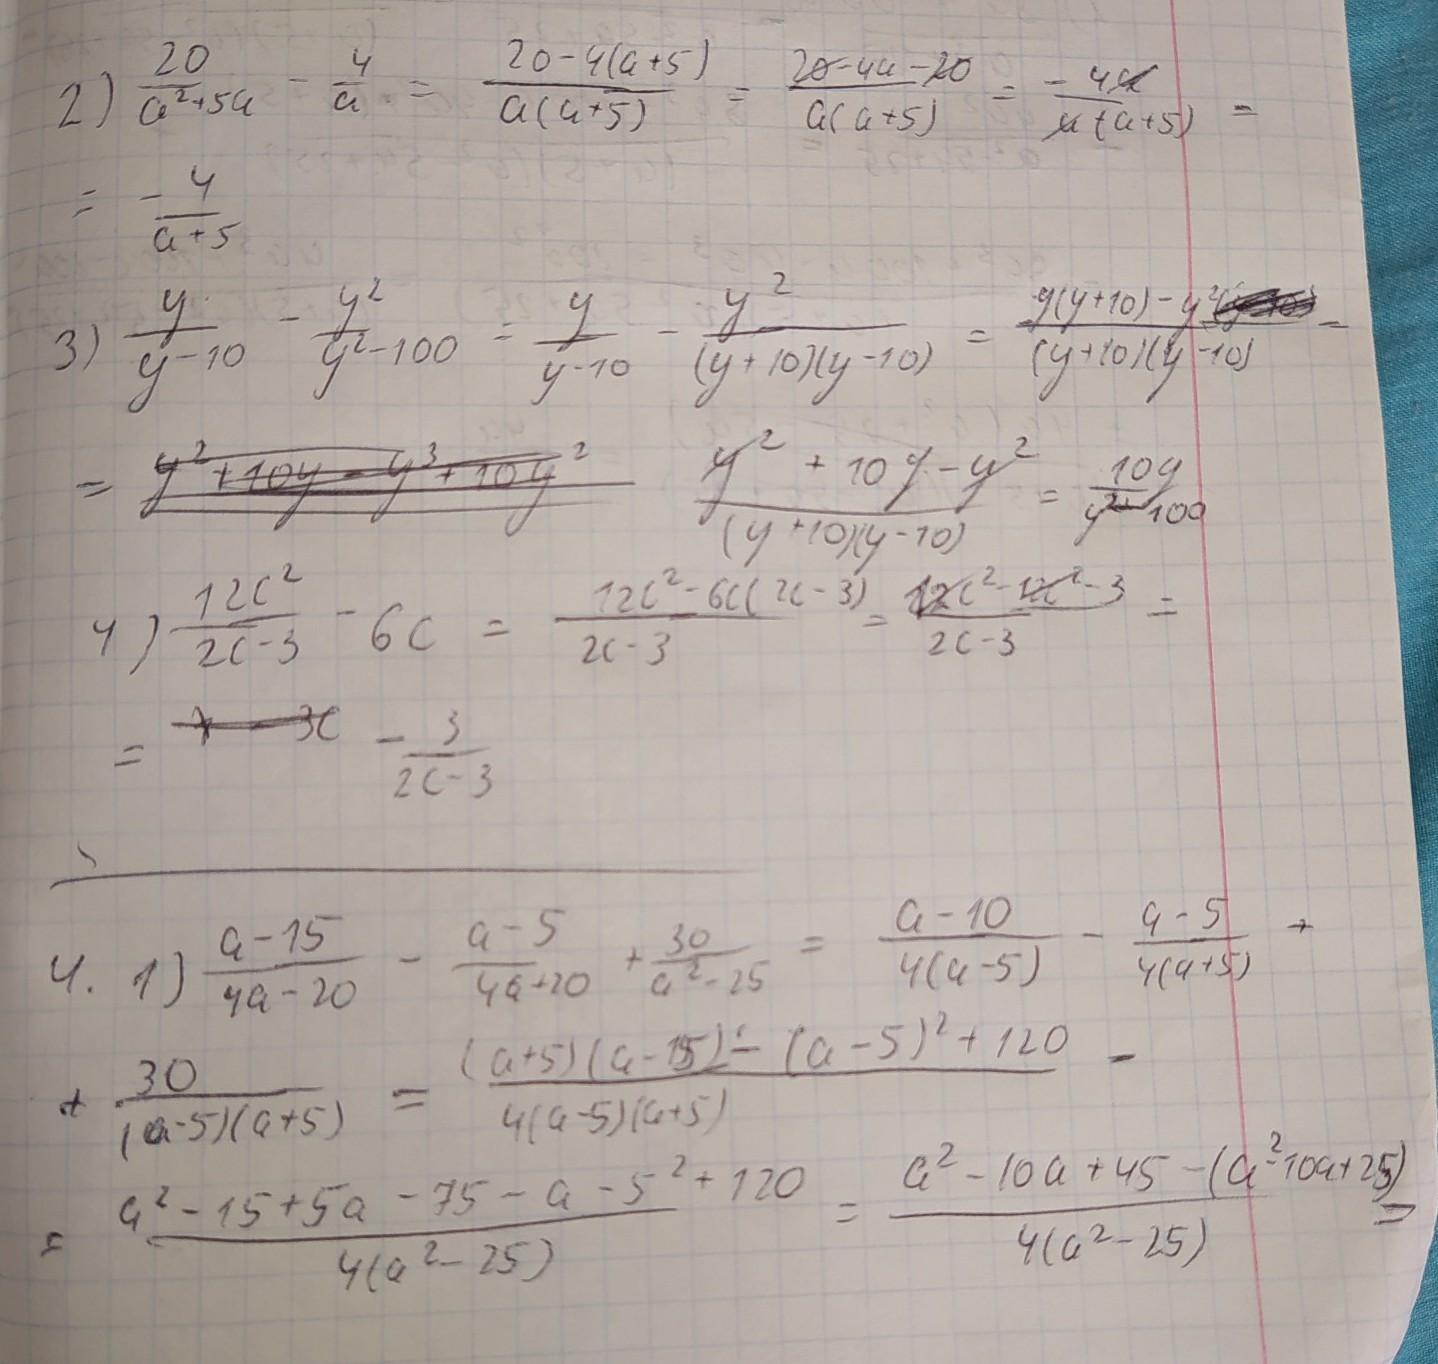 2) 20/(a²+5a) - 4/a = (20-4(a+5))/(a(a+5)) = (20-4a-20)/(a(a+5)) = -4a/(a(a+5)) =
= -4/(a+5)
3) y/(y-10) - y²/(y²-100) = y/(y-10) - y²/((y+10)(y-10)) = (y(y+10)-y²)/((y+10)(y-10)) -
= y²+10y-y³+10y² (y²+10y-y²)/((y+10)(y-10)) = 10y/(y²-100)
4) 12c²/(2c-3) - 6c = (12c²-6c(2c-3))/(2c-3) = (12c²-12c²-3)/(2c-3) =
= - 3/(2c-3)
4. 1) (a-15)/(4a-20) - (a-5)/(4a+20) + 30/(a²-25) = (a-10)/(4(a-5)) - (a-5)/(4(a+5)) +
+ 30/((a-5)(a+5)) = ((a+5)(a-15)-(a-5)²+120)/(4(a-5)(a+5)) -
= (a²-15+5a-75-a-5²+120)/(4(a²-25)) = (a²-10a+45-(a²-10a+25))/(4(a²-25)) =